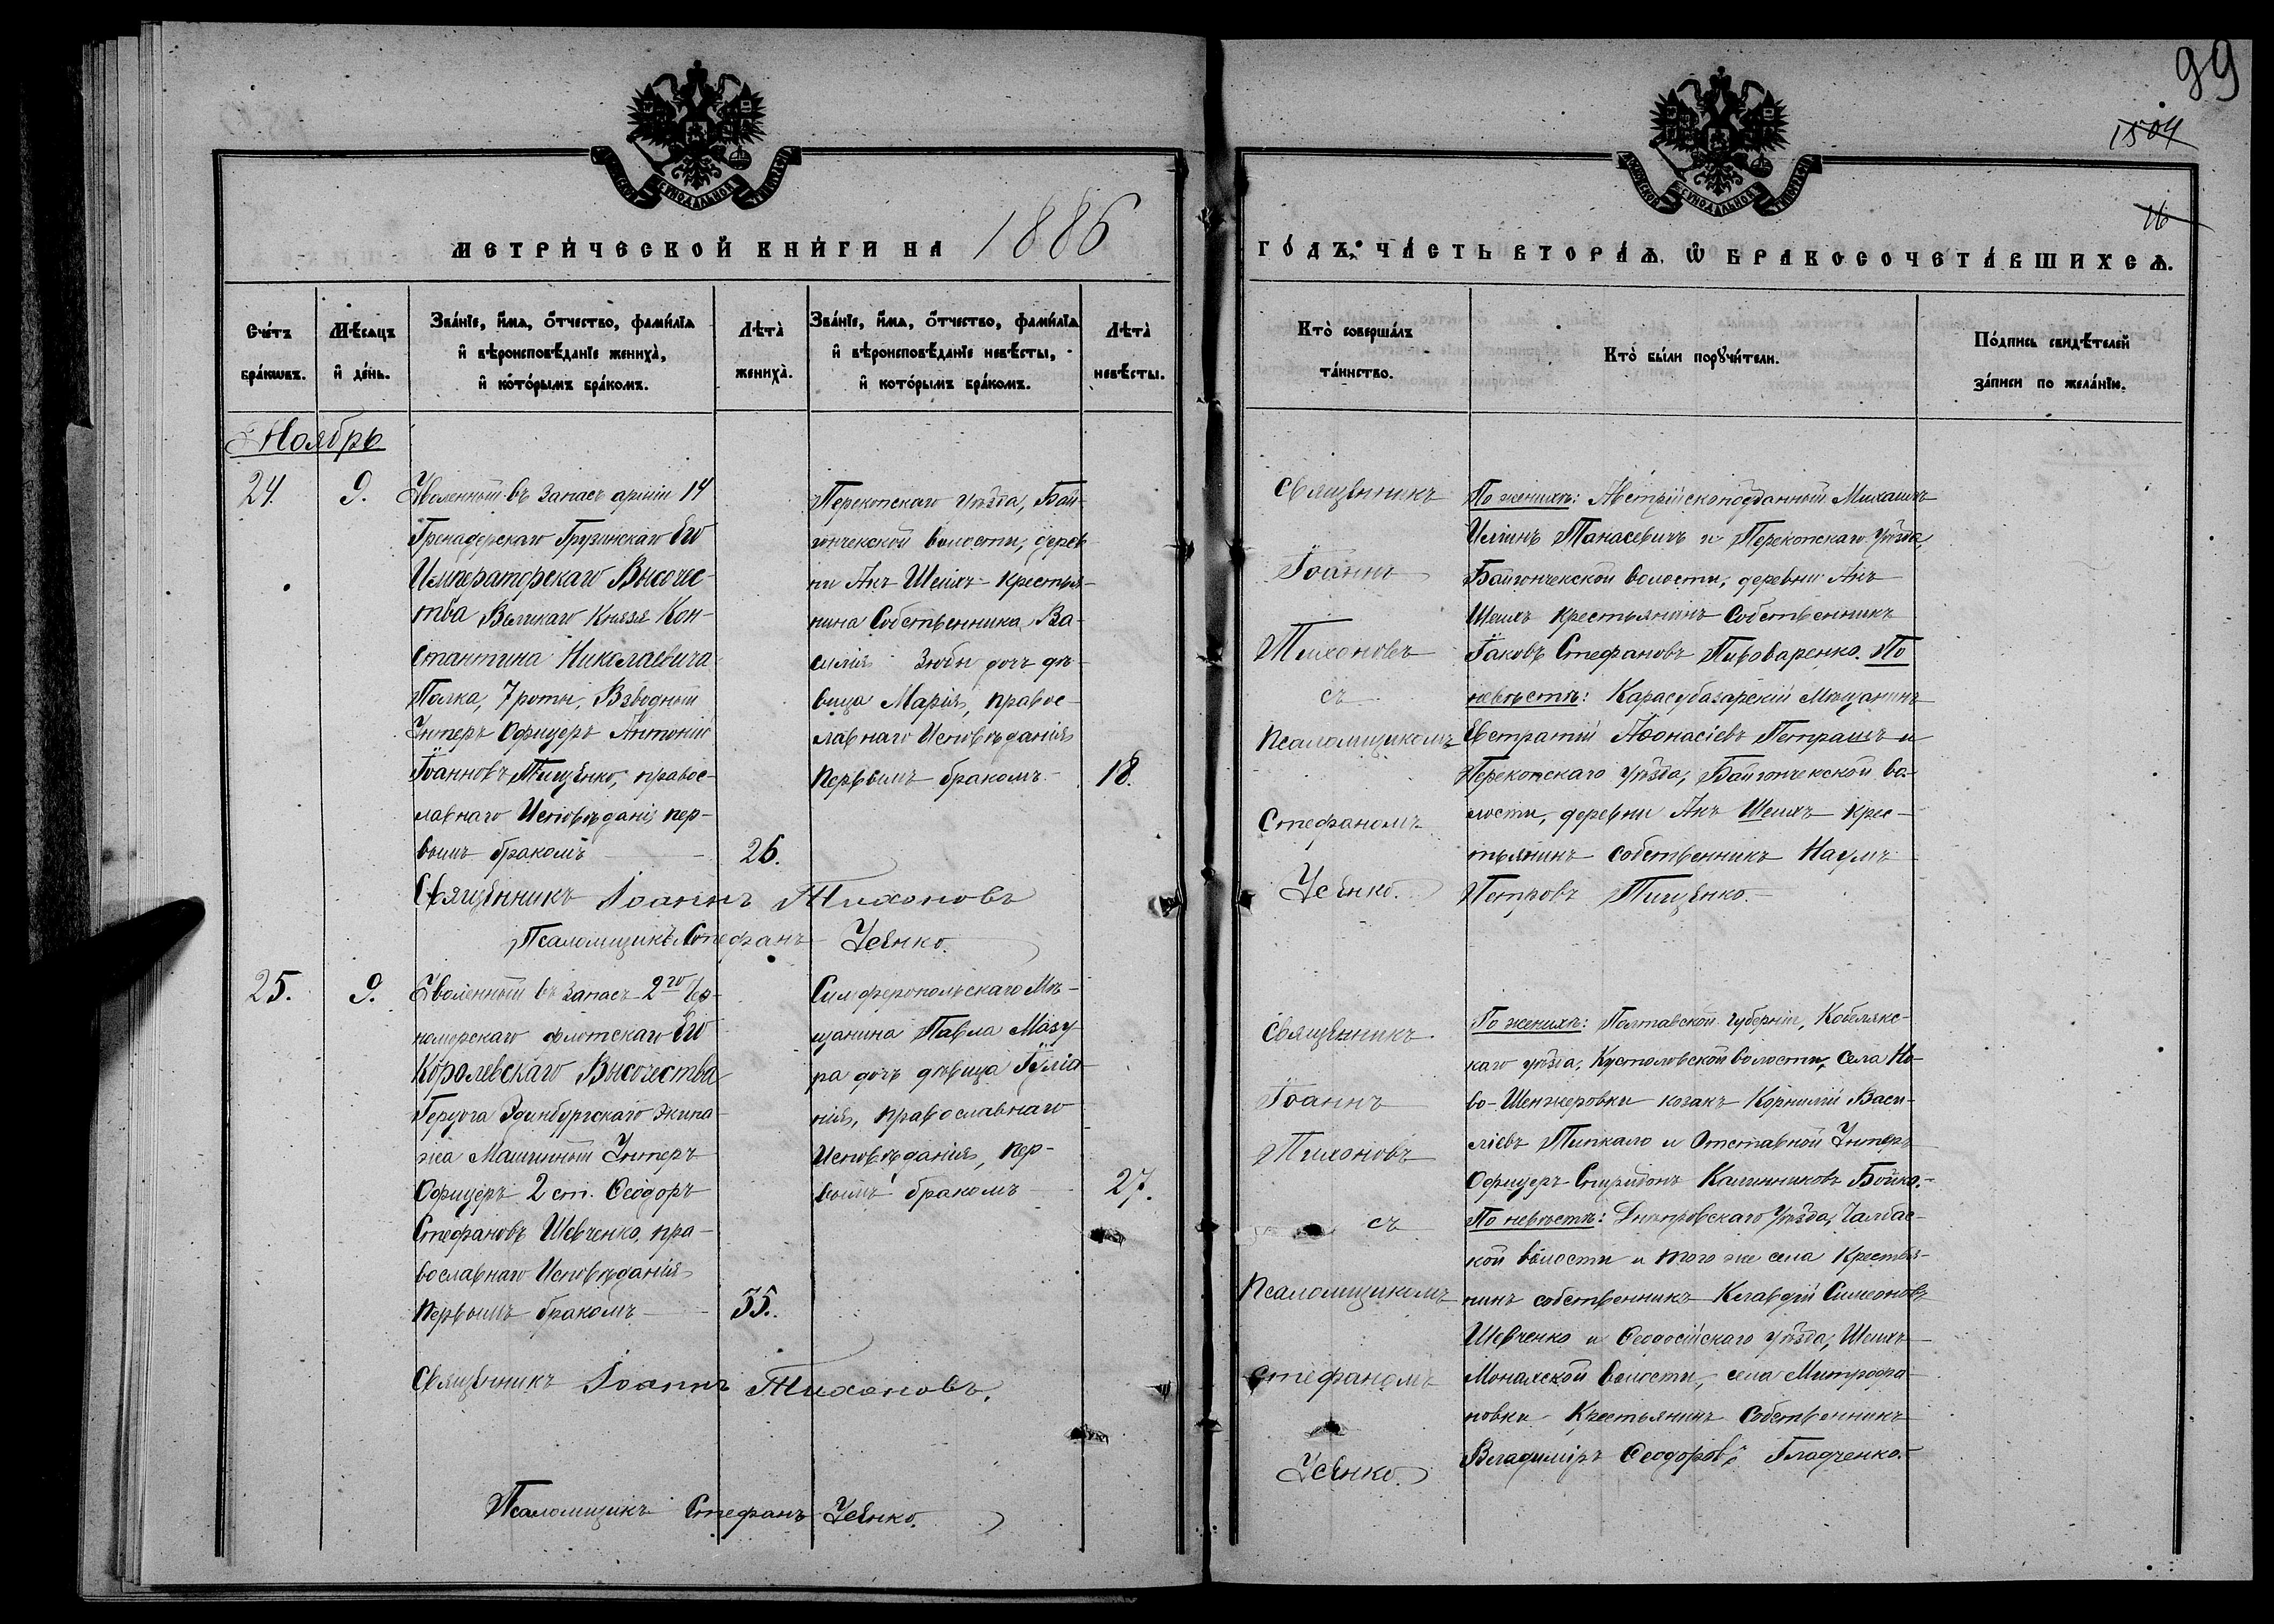 99
1504
16
МОСКОВСКОЙ СѴНОДАЛЬНОЙ ТИПОГРАФІИ
МОСКОВСКОЙ СѴНОДАЛЬНОЙ ТИПОГРАФІИ
МЕТРИ́ЧЕСКОЙ КНИ́ГИ НА 1886
ГО́ДЪ, ЧА́СТЬ ВТОРА́Ѧ, Ѡ҆ БРАКОСОЧЕТА́ВШИХСѦ.
Сче́тъ
бра́кѡвъ.
Мѣ́сяцъ
и҆ де́нь.
Зва́нїе, и҆́мѧ, ѻ҆́тчество, фами́лїѧ
и҆ вѣроисповѣ́данїе жениха̀,
и҆ кото́рымъ бра́комъ.
Лѣта̀
жениха̀.
Зва́нїе, и҆́мѧ, ѻ҆́тчество, фами́лїѧ
и҆ вѣроисповѣ́данїе невѣ́сты,
и҆ кото́рымъ бра́комъ.
Лѣта̀
невѣ́сты.
Кто̀ соверша́лъ
та́инство.
Кто̀ бы́ли порꙋчи́тели.
По́дпись свидѣ́телей
за́писи по жела́нїю.
Ноябрь
24.
9.
Уволенный въ запасъ арміи 14
Гренадерскаго Грузинскаго Его
Императорскаго Высочес-
тва Великаго Князя Кон-
стантина Николаевича
Полка, 7 роты, Взводный
Унтеръ Офицеръ Антоній
Іоанновъ Тищенко, правос-
лавнаго Исповѣданія пер-
вымъ бракомъ
26.
Перекопскаго уѣзда, Бай-
гончекской волости, дерев
ни Акъ Шеихъ крестья-
нина Собственника Ва-
силія Зюбы дочь дѣ-
вица Марія, правос-
лавнаго Исповѣданія
первымъ бракомъ
18.
Священникъ
Іоаннъ
Тихоновъ
съ
псаломщикомъ
Стефаномъ
Усенко.
По женихѣ: Австрійскоподданный Михаилъ
Илiинъ Танасевичъ и Перекопскаго уѣзда,
Байгончекской волости, деревни Акъ
Шеихъ крестьянинъ Собственникъ
Іаковъ Стефановъ Пивоваренко. По
невѣстѣ: Карасубазарскій Мѣщанинъ
Евстратій Аѳонасіевъ Петрашъ и
Перекопскаго уѣзда, Байгончекской во-
лости, деревни Акъ Шеихъ крес-
тьянинъ собственникъ Наумъ
Петровъ Тищенко.
Священникъ Іоаннъ Тихоновъ
Псаломщикъ Стефанъ Усенко.
25.
9.
Уволенный въ запасъ 2го Чер-
номорскаго флотскаго Его
Королевскаго Высочества
Герцога Эдинбургскаго экипа-
жа Машинный Унтеръ
Офицеръ 2 ст. Ѳеодоръ
Стефановъ Шевченко, пра-
вославнаго Исповѣданія
первымъ бракомъ
35.
Симферопольскаго Мѣ-
щанина Павла Мазу-
ра дочь дѣвица Іуліа-
нія, православнаго
Исповѣданія, пер-
вымъ бракомъ
27.
Священникъ
Іоаннъ
Тихоновъ
съ
псаломщикомъ
Стефаномъ
Усенко.
По женихѣ: Полтавской губерніи, Кобелякс-
каго уѣзда, Кустоловской волости, села Но-
во-Шенжеровки козакъ Корнилій Васи-
ліевъ Типкало и Отставной Унтеръ
Офицеръ Спиридонъ Калинниковъ Бойко.
По невѣстѣ: Днѣпровскаго уѣзда, Чалбас-
кой волости и того же села Крестья-
нинъ собственникъ Клавдій Симеоновъ
Шевченко и Ѳеодосійскаго уѣзда, Шеихъ-
Монахской волости, села Митрофа-
новки Крестьянинъ Собственникъ
Владиміръ Ѳеодоровъ Гладченко.
Священникъ Іоаннъ Тихоновъ.
Псаломщикъ Стефанъ Усенко.